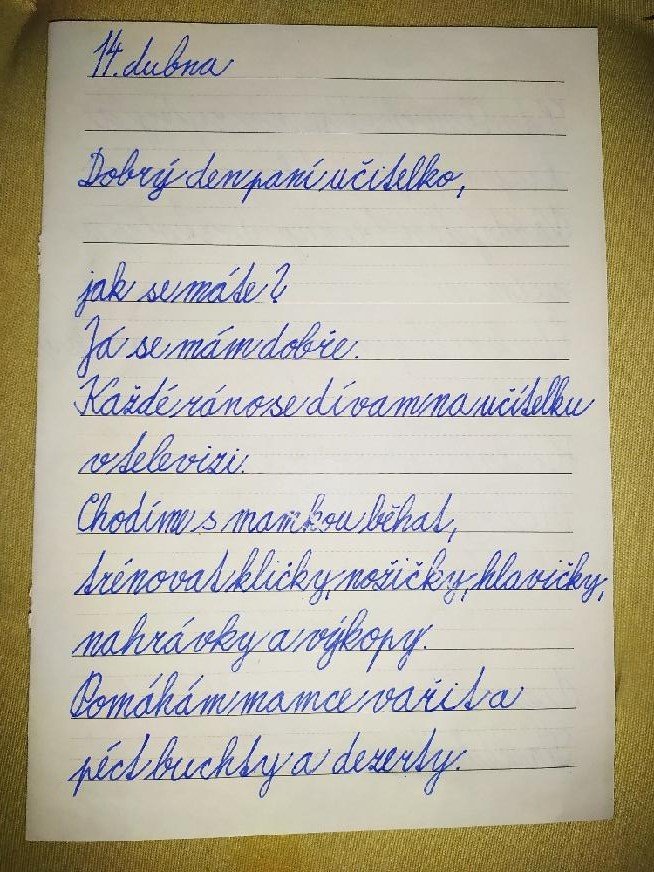 14. dubna
Dobrý den paní učitelko,
jak se máte?
Já se mám dobře.
Každé ráno se dívam na učitelku
v televizi.
Chodíme s mamkou běhat,
trénovat kličky, nožičky, hlavičky,
nahrávky a výkopy.
Pomáhám mamce vařit a
péct buchty a dezerty.